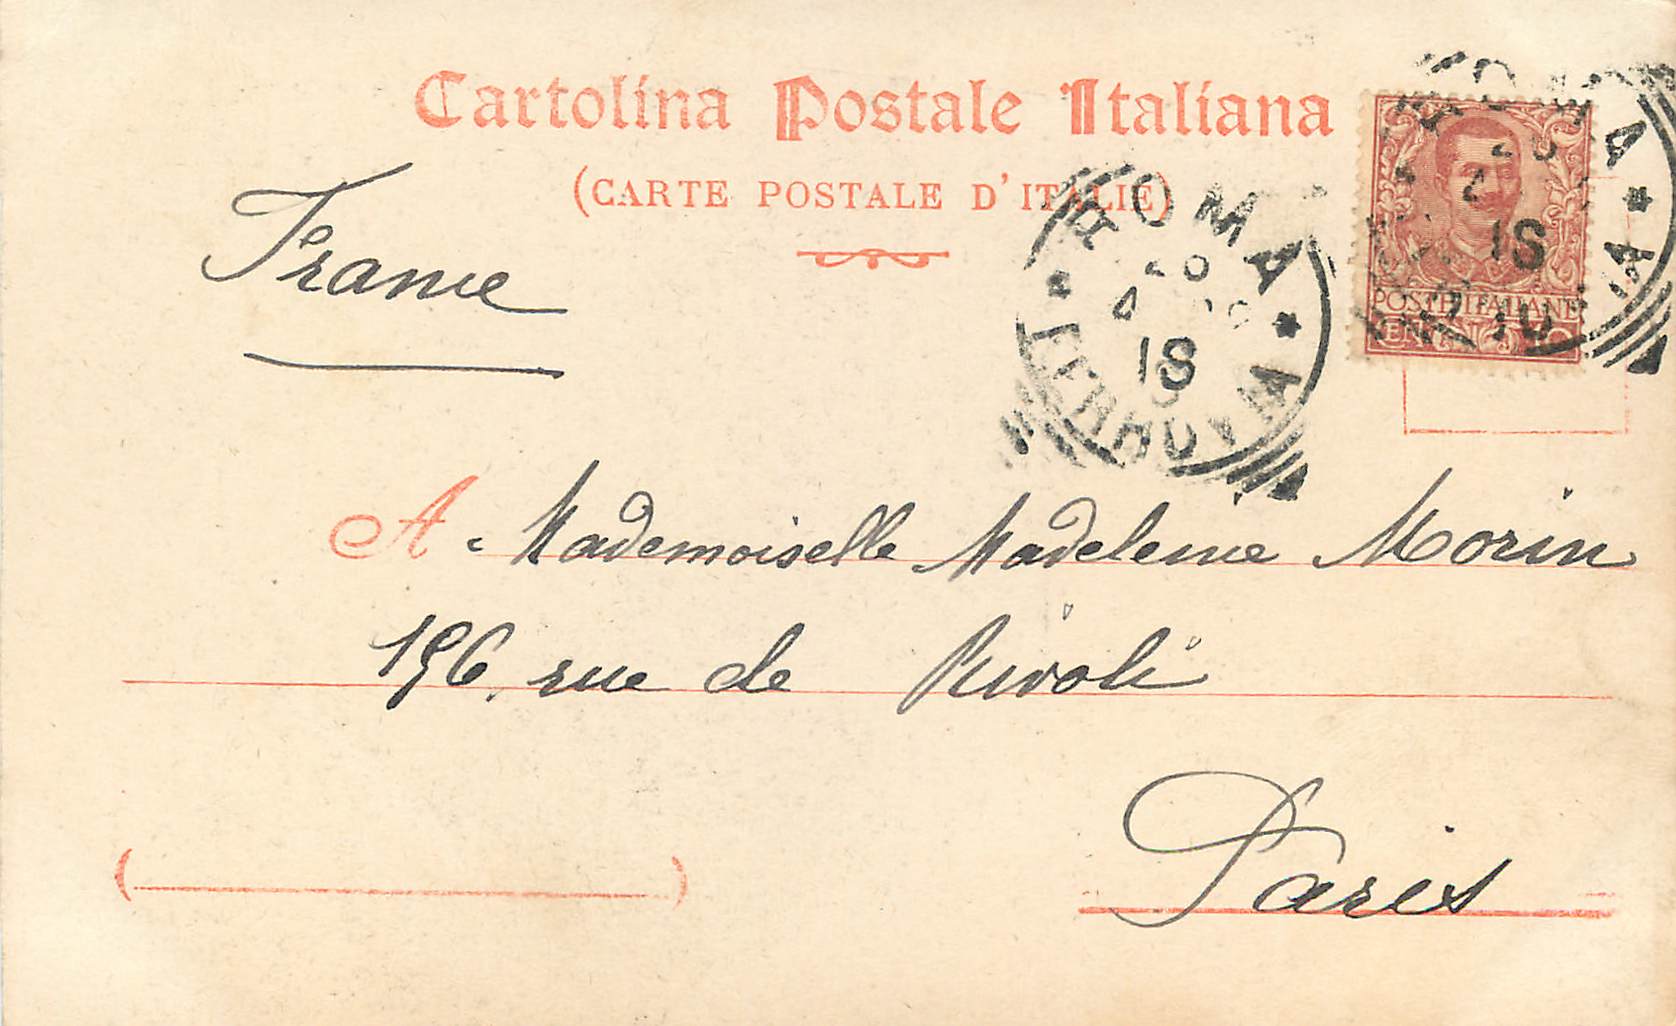 Cartolina Postale Italiana
(CARTE POSTALE D'ITALIE)
France
ROMA
4
18
FERROVIA
ROMA
18
POSTE ITALIANE
A Mademoiselle Madeleine Morin
196, rue de Rivoli
Paris